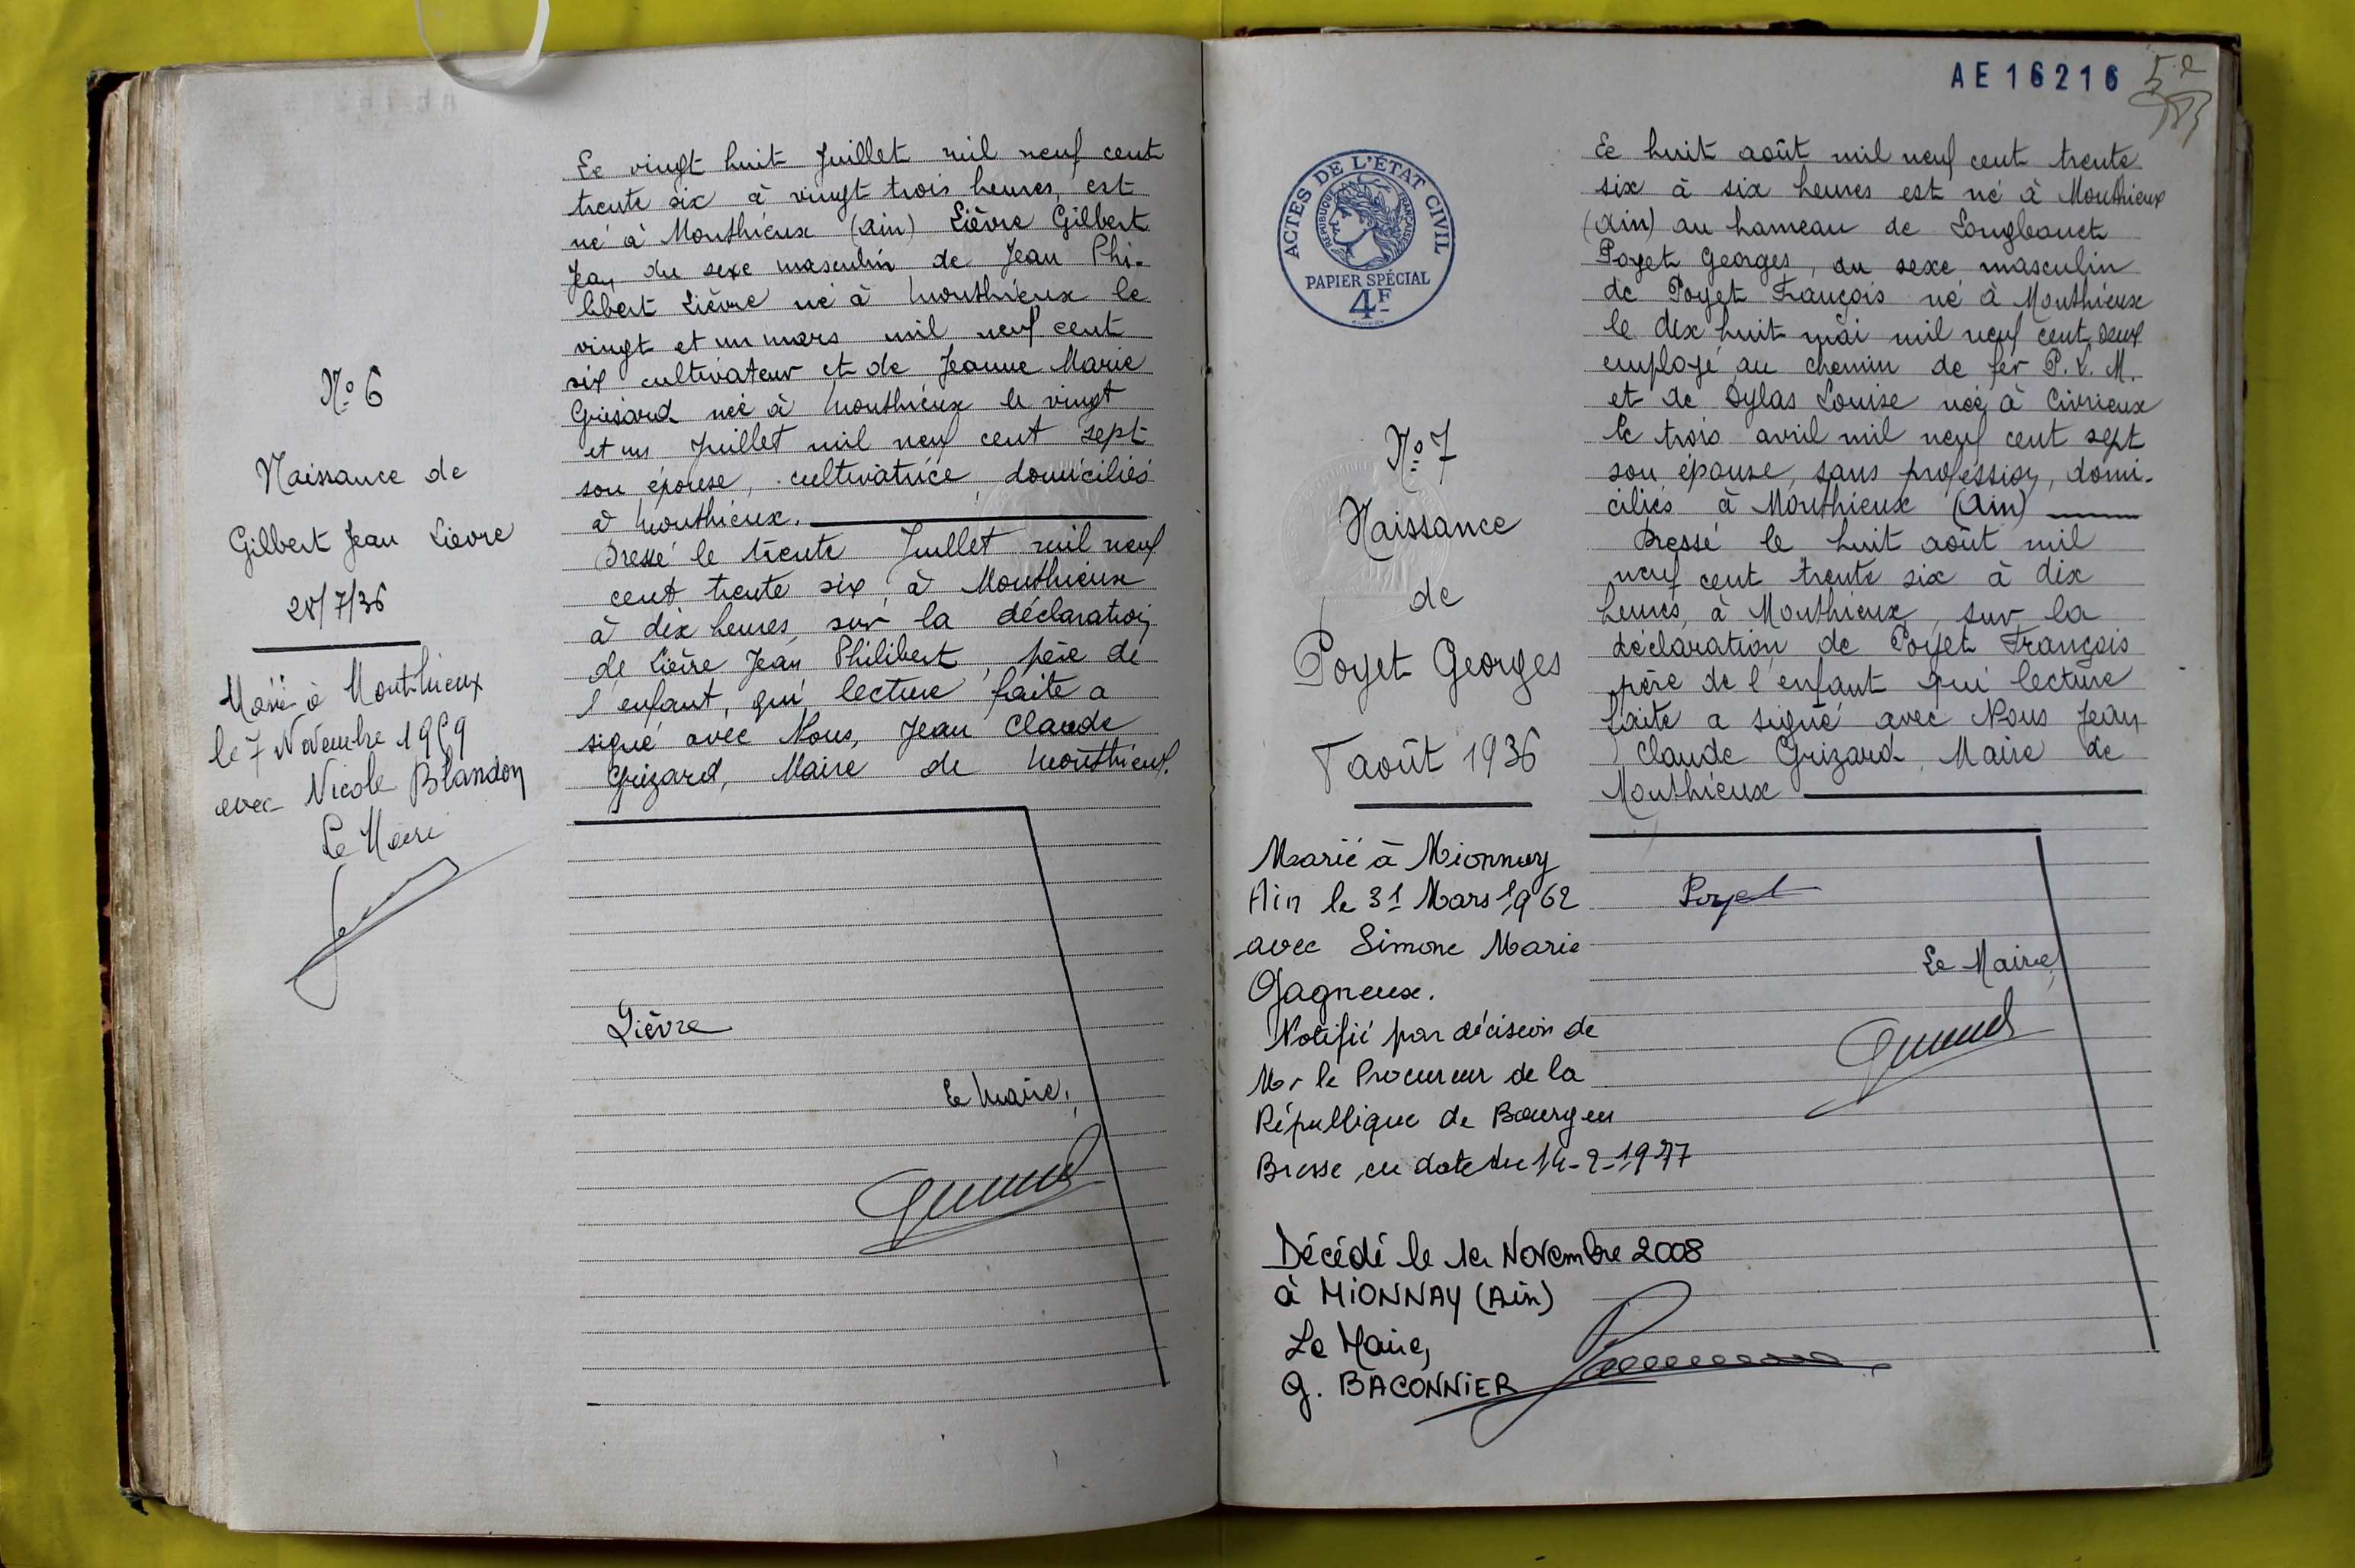 N° 6
Naissance de
Gilbert Jean Lièvre
28/7/36
Marié à Monthieux
le 7 Novembre 1959
avec Nicole Blandon
Le Maire
Le vingt huit Juillet mil neuf cent
trente six à vingt trois heures, est
né à Monthieux (Ain) Lièvre Gilbert
Jean du sexe masculin de Jean Phi-
libert Lièvre né à Monthieux le
vingt et un mars mil neuf cent
six cultivateur et de Jeanne Marie
Grisard née à Monthieux le vingt
et un Juillet mil neuf cent sept
son épouse, cultivatrice, domiciliés
à Monthieux.
Dressé le trente Juillet mil neuf
cent trente six, à Monthieux
à dix heures, sur la déclaration
de Lièvre Jean Philibert, père de
l'enfant, qui, lecture faite a
signé avec Nous, Jean Claude
Grizard, Maire de Monthieux.
Lièvre
Le Maire,
AE16216
ACTES DE L'ÉTAT CIVIL
RÉPUBLIQUE FRANÇAISE
PAPIER SPÉCIAL
4F
N° 7
Naissance
de
Poyet Georges
août 1936
Marié à Mionnay
Ain le 31 Mars 1962
avec Simone Marie
Gagneux.
Notifié par décision de
Mr le Procureur de la
République de Bourg en
Bresse, en date du 14-2-1977
Décédé le 1er Novembre 2008
à MIONNAY (Ain)
Le Maire,
G. BACONNIER
Le huit août mil neuf cent trente
six à six heures est né à Monthieux
(Ain) au hameau de
Poyet Georges, du sexe masculin
de Poyet François né à Monthieux
le dix huit mai mil neuf cent deux
employé au chemin de fer P.L.M.
et de Dylas Louise née à Civrieux
le trois avril mil neuf cent sept
son épouse, sans profession, domi-
ciliés à Monthieux (Ain)
Dressé le huit août mil
neuf cent trente six à dix
heures, à Monthieux, sur la
déclaration de Poyet François
père de l'enfant qui lecture
faite a signé avec Nous Jean
Claude Grizard, Maire de
Monthieux
Poyet
Le Maire,